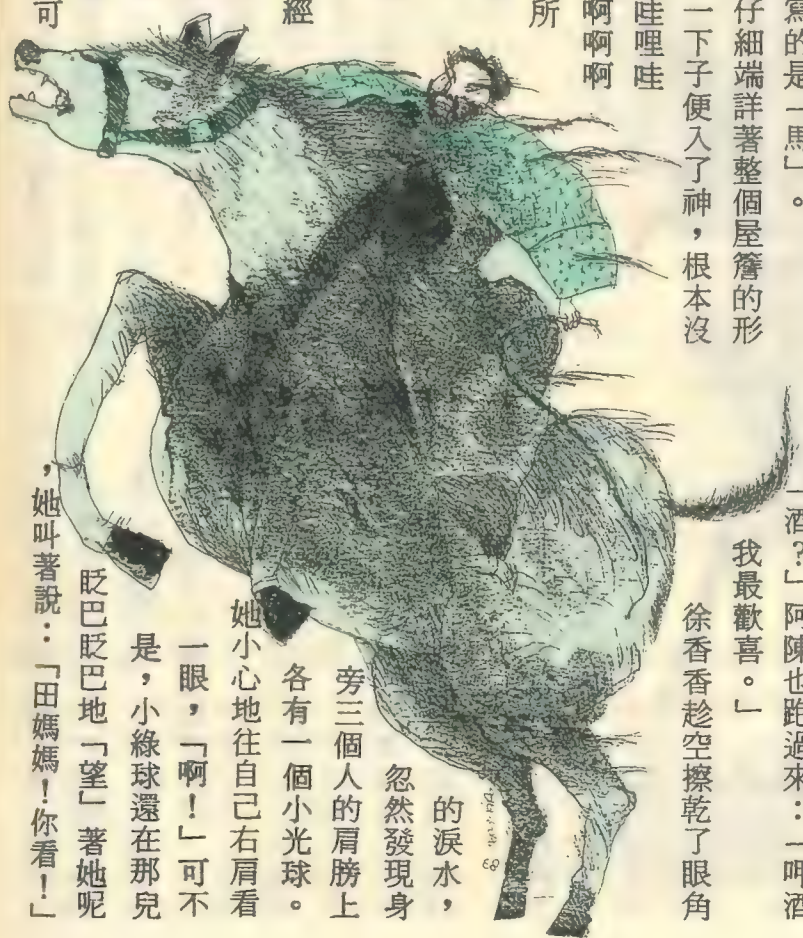 寫的是「馬」。
仔細端詳著整個屋簷的形
一下子便入了神，根本沒
哇哩哇
啊啊啊
所
經
可
「酒？」阿陳也跑過來：「呷酒
我最歡喜。」
徐香香趁空擦乾了眼角
的淚水，
忽然發現身
旁三個人的肩膀上
各有一個小光球。
她小心地往自己右肩看
一眼，「啊！」可不
是，小綠球還在那兒
眨巴眨巴地「望」著她呢
，她叫著說：「田媽媽！你看！」